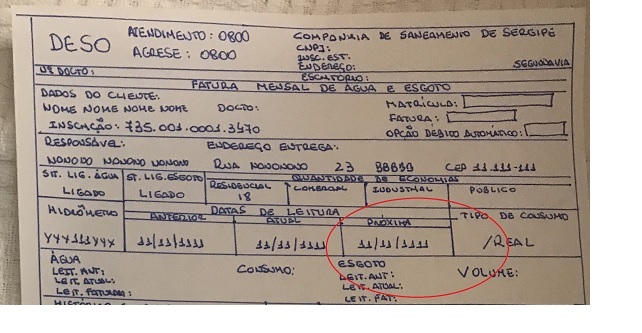 DESO ATENDIMENTO: 0800 COMPANHIA DE SANEAMENTO DE SERGIPE
AGRESE: 0800 CNPJ:
INSC. EST.:
ENDEREÇO: SEGUNDA VIA
Nº DOCTO: ESCRITÓRIO:
FATURA MENSAL DE ÁGUA E ESGOTO
DADOS DO CLIENTE: MATRÍCULA:
NOME NOME NOME NOME DOCTO: FATURA:
INSCRIÇÃO: 735.001.0001.3470 OPÇÃO DEBITO AUTOMÁTICO:
RESPONSÁVEL: ENDEREÇO ENTREGA:
NONONO NONONO NONONO RUA NONONONO 23 BBBBB CEP 11.111-111
SIT. LIG. ÁGUA ST. LIG. ESGOTO QUANTIDADE DE ECONOMIAS
LIGADO LIGADO RESIDENCIAL COMERCIAL INDUSTRIAL PÚBLICO
18
HIDRÔMETRO DATAS DE LEITURA TIPO DE CONSUMO
ANTERIOR ATUAL PRÓXIMA
YYY111YYX 11/11/1111 11/11/1111 11/11/1111 /REAL
ÁGUA CONSUMO: ESGOTO VOLUME:
LEIT. ANT: LEIT. ANT:
LEIT. ATUAL: LEIT. ATUAL:
LEIT. FATURADA: LEIT. FAT: